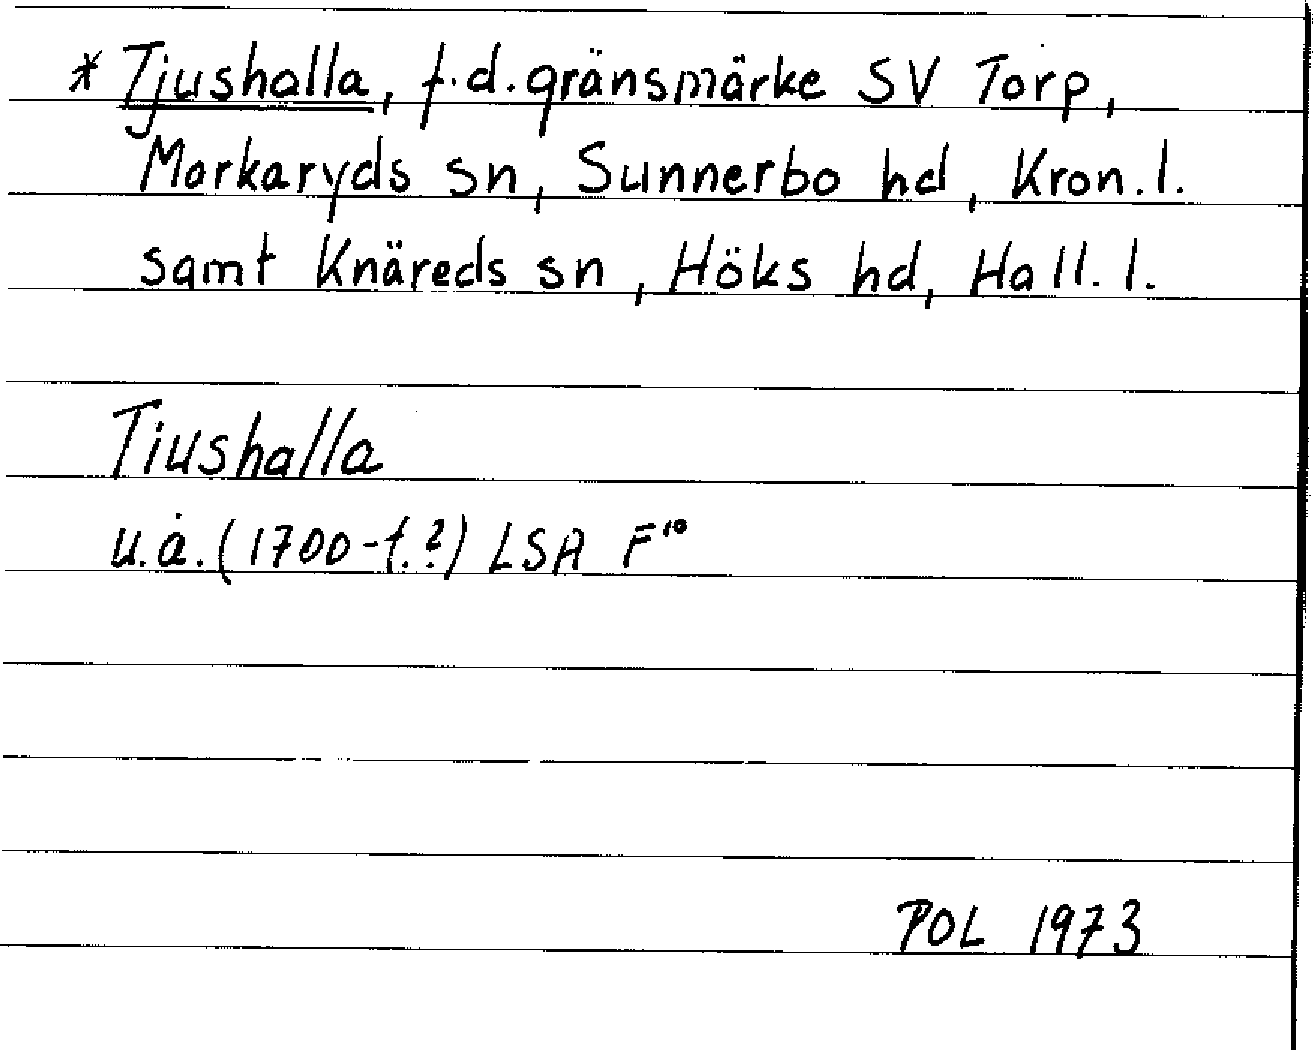 * Tjushalla, f.d. gränsmärke SV Torp,
Markaryds sn, Sunnerbo hd, Kron.l.
samt Knäreds sn, Höks hd, Hall.l.
Tiushalla
u.å. (1700-t.?) LSA F¹⁰
POL 1973